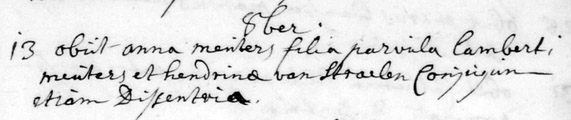 8ber.
13 obiit anna meuters filia parvula Lamberti
meuters et hendrinæ van Straelen Conjugum
etiam Dissentria.